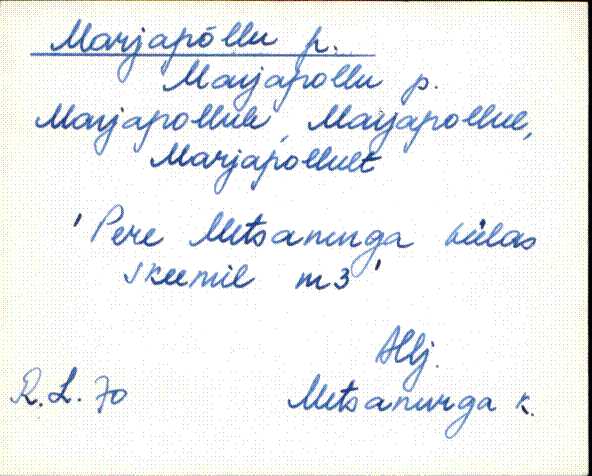 Marjapõllu p.
Marjapollu p.
Marjapollule, Marjapollul,
Marjapollult
'Pere Metsanurga külas
skeemil m3'
Hlj.
R.L. 70
Metsanurga k.